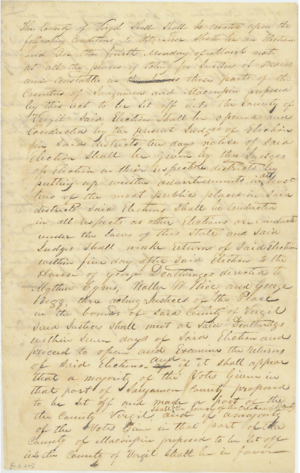 The County of Virgil Shall be created upon the
following conditions to wit there Shall be an Election
on the fourth Monday of next
at all the places of voting for Justices of Peace
and Constable in those parts of the
Counties of Sangamon and Macoupin proposed
by this act to be Set off into the County of
Virgil Said Election Shall be opened and
Conducted by the present Judges of Election
in Said districts ten days notice of Said
election Shall be given by the Judges
of election in their respective districts by
putting up written advertisements in at least
two of the most public places in their
districts Said Elections Shall be Conducted
in all respects as other Elections are conducted
under the laws of this State and Said
Judges Shall make returns of Said Election
within five days after Said Election to the
House of George directed to
Walter W. and George
three acting Justices of the Peace
in the bounds of Said County of Virgil
Said Justices Shall meet at Said
within Seven days of Said Election and
proceed to open and Examine the returns
of Said Elections and if it Shall appear
that a majority of the Votes Given in
that part of Sangamon County proposed
to be Set off and made a part of the
County Virgil Shall be in favor of the creation of the County and if a majority
of the Votes Given in that part of the
County of Macoupin proposed to be Set off
into the County of Virgil Shall be in favor